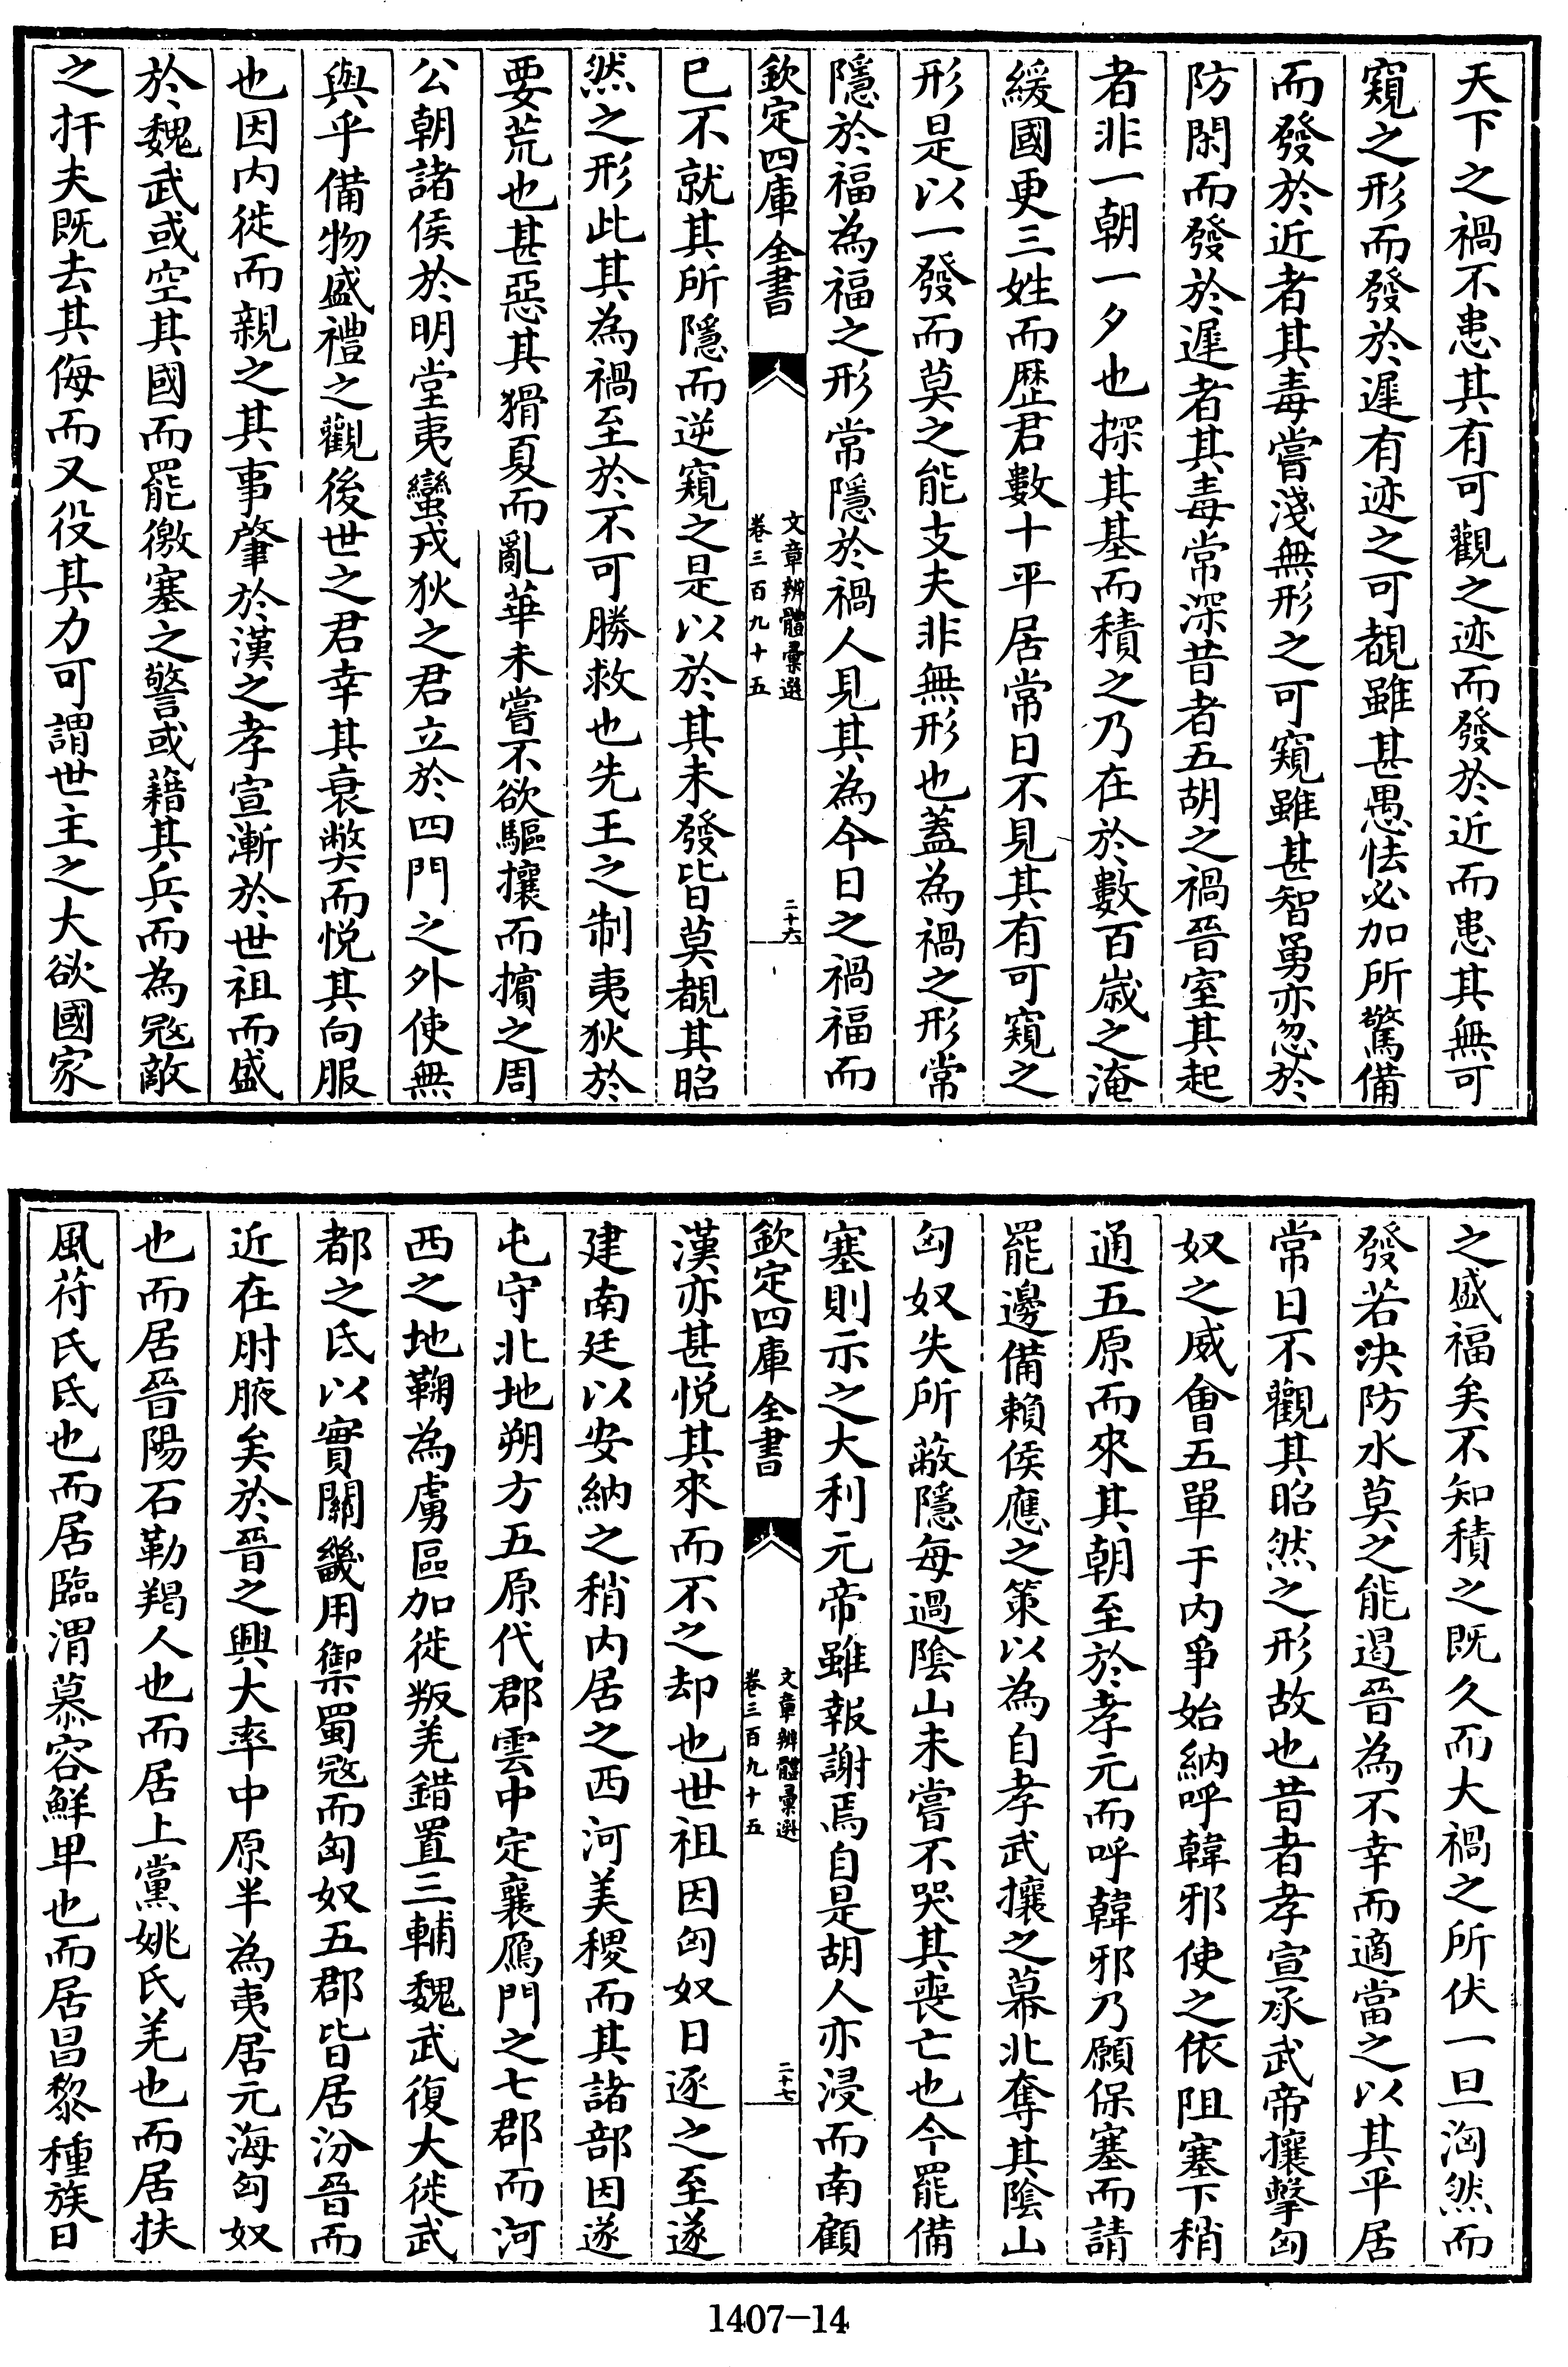 天下之禍不患其有可觀之迹而發於近而患其無可
窺之形而發於遲有迹之可覩雖甚愚怯必加所驚備
而發於近者其毒嘗淺無形之可窺雖甚智勇亦忽於
防閑而發於遲者其毒常深昔者五胡之禍晉室其起
者非一朝一夕也探其基而積之乃在於數百歲之淹
緩國更三姓而歷君數十平居常日不見其有可窺之
形是以一發而莫之能支夫非無形也蓋為禍之形常
隱於福為福之形常隱於禍人見其為今日之禍福而
欽定四庫全書
文章辨體彙選
卷三百九十五
二十六
已不就其所隱而逆窺之是以於其未發皆莫覩其昭
然之形此其為禍至於不可勝救也先王之制夷狄於
要荒也甚惡其猾夏而亂華未嘗不欲驅攘而擯之周
公朝諸侯於明堂夷蠻戎狄之君立於四門之外使無
與乎備物盛禮之觀後世之君幸其衰弊而悅其向服
也因内徙而親之其事肇於漢之孝宣漸於世祖而盛
於魏武或空其國而罷徼塞之警或藉其兵而為冦敵
之扞夫既去其侮而又役其力可謂世主之大欲國家
之盛福矣不知積之既久而大禍之所伏一旦洶然而
發若決防水莫之能遏晉為不幸而適當之以其平居
常日不觀其昭然之形故也昔者孝宣承武帝攘擊匈
奴之威會五單于内爭始納呼韓邪使之依阻塞下稍
通五原而來其朝至於孝元而呼韓邪乃願保塞而請
罷邊備賴侯應之策以為自孝武攘之幕北奪其陰山
匈奴失所蔽隱每過陰山未嘗不哭其喪亡也今罷備
塞則示之大利元帝雖報謝焉自是胡人亦浸而南顧
欽定四庫全書
文章辨體彙選
卷三百九十五
二十七
漢亦甚悅其來而不之却也世祖因匈奴日逐之至遂
建南廷以安納之稍内居之西河美稷而其諸部因遂
屯守北地朔方五原代郡雲中定襄鴈門之七郡而河
西之地鞠為虜區加徙叛羌錯置三輔魏武復大徙武
都之氐以實關畿用禦蜀冦而匈奴五郡皆居汾晉而
近在肘腋矣於晉之興大率中原半為夷居元海匈奴
也而居晉陽石勒羯人也而居上黨姚氏羌也而居扶
風苻氏氐也而居臨渭慕容鮮卑也而居昌黎種族日
1407-14